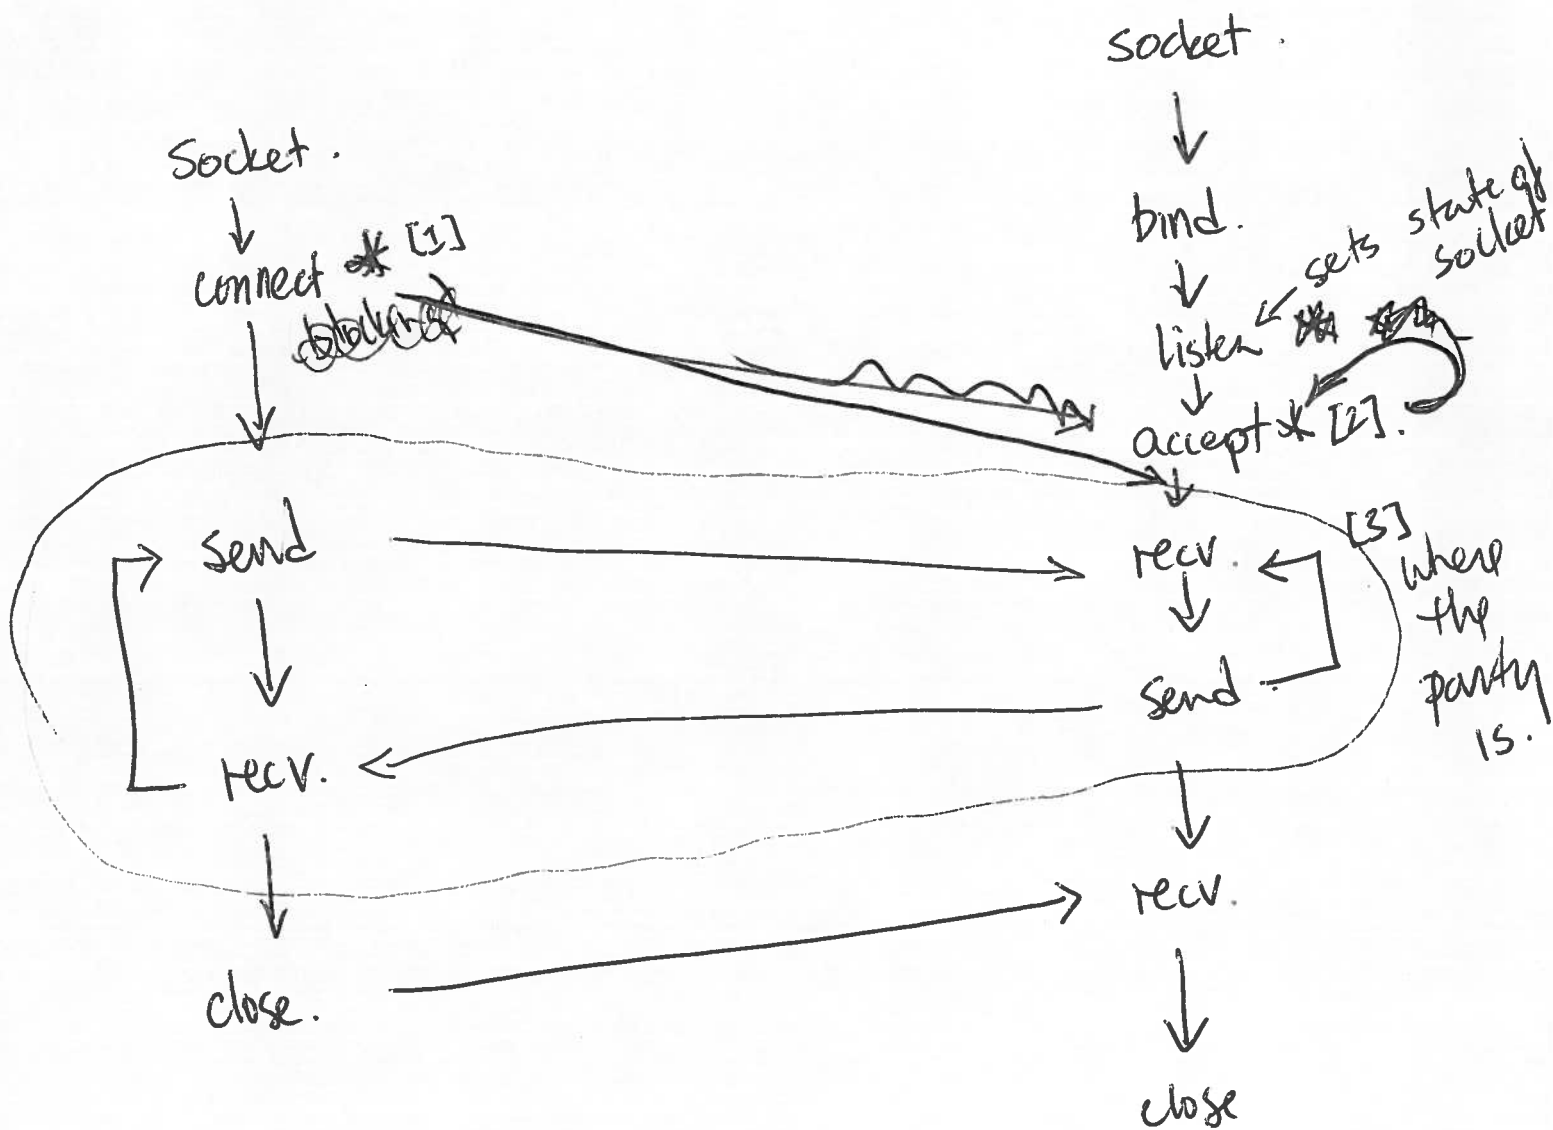 Socket.
connect * [1]
send
recv.
close.
socket.
bind.
listen
sets state of
socket
accept * [2].
recv.
send
[3]
where
the
party
is.
recv.
close